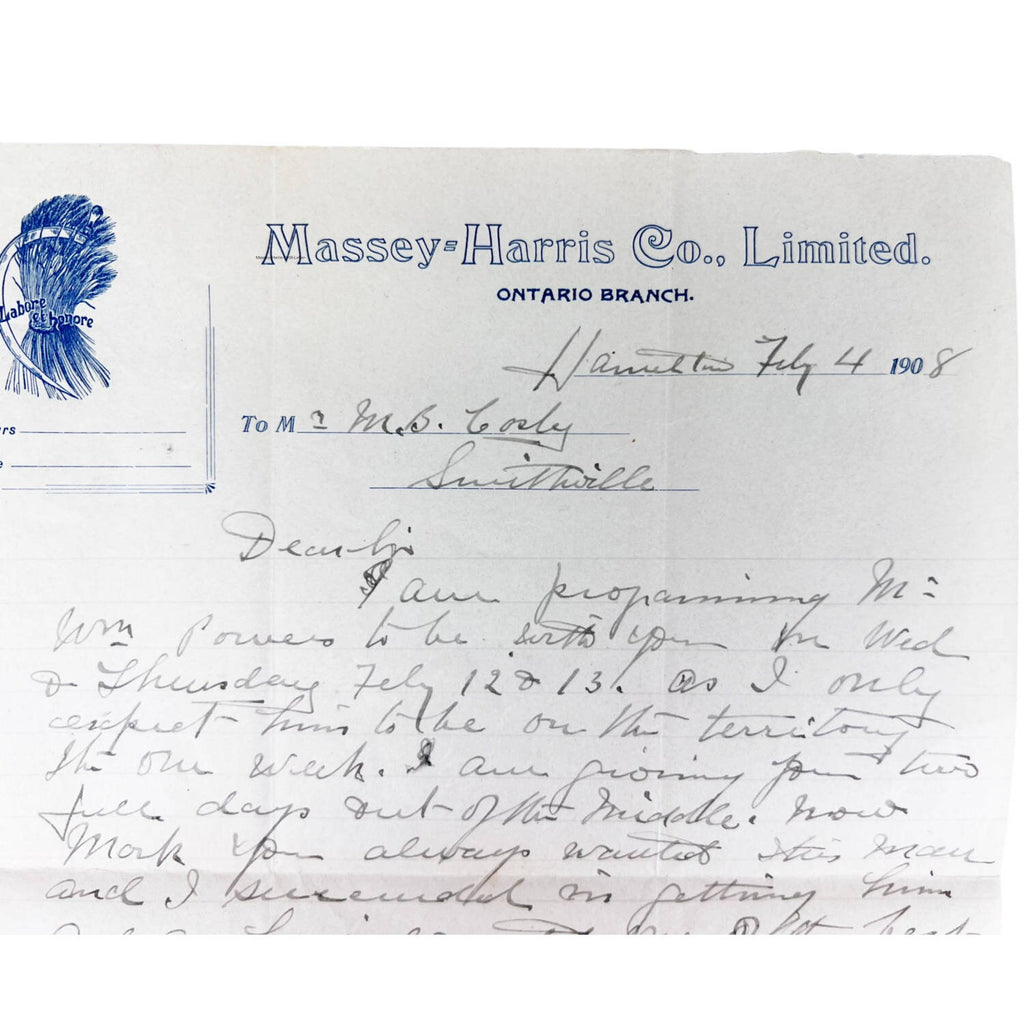 Massey-Harris Co., Limited.
ONTARIO BRANCH.
Labore
et honore
Hamilton Feby 4 1908
To Mr M.B. Cosby
Smithville
rs
e
Dear Sir
I am programing Mr
Wm Powers to be with you on Wed
& Thursday Feby 12 & 13. as I only
expect him to be on the territory
the one week. I am giving you two
full days out of the middle. Now
Mark you always wanted this man
and I succeeded in getting him